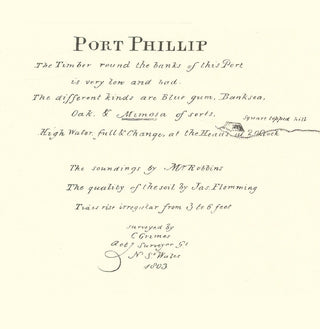 PORT PHILLIP
The Timber round the banks of this Port
is very low and bad.
The different kinds are Blue gum, Banksea,
Oak, & Mimosa of sorts.
Square topped hill
High Water, full & Change, at the Heads at 2 O'Clock
The soundings by Mr. Robbins
The quality of the soil by Jas. Flemming
Tides rise irregular from 3 to 6 feet
surveyed by
C Grimes
Actg Surveyor Gl
N So Wales
1803